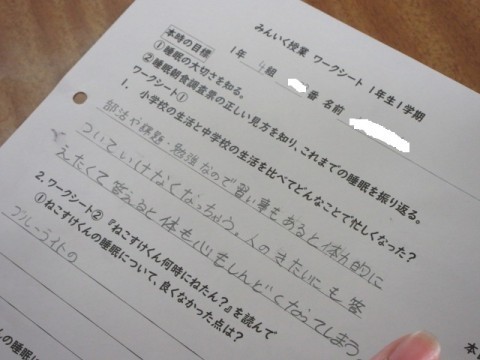 みんいく授業 ワークシート 1年生1学期
1年 4組 番 名前
本時の目標
①睡眠の大切さを知る。
②睡眠朝食調査票の正しい見方を知り、これまでの睡眠を振り返る。
ワークシート①
1. 小学校の生活と中学校の生活を比べてどんなことで忙しくなった?
部活や課題・勉強なので習い事もあると体力的に
ついていけなくなっちゃう。人のきたいにも答
えたくて答えると体も心もしんどくなってしまう。
2. ワークシート②『ねこすけくん何時にねたん?』を読んで
①ねこすけくんの睡眠について、良くなかった点は?
ブルーライトの